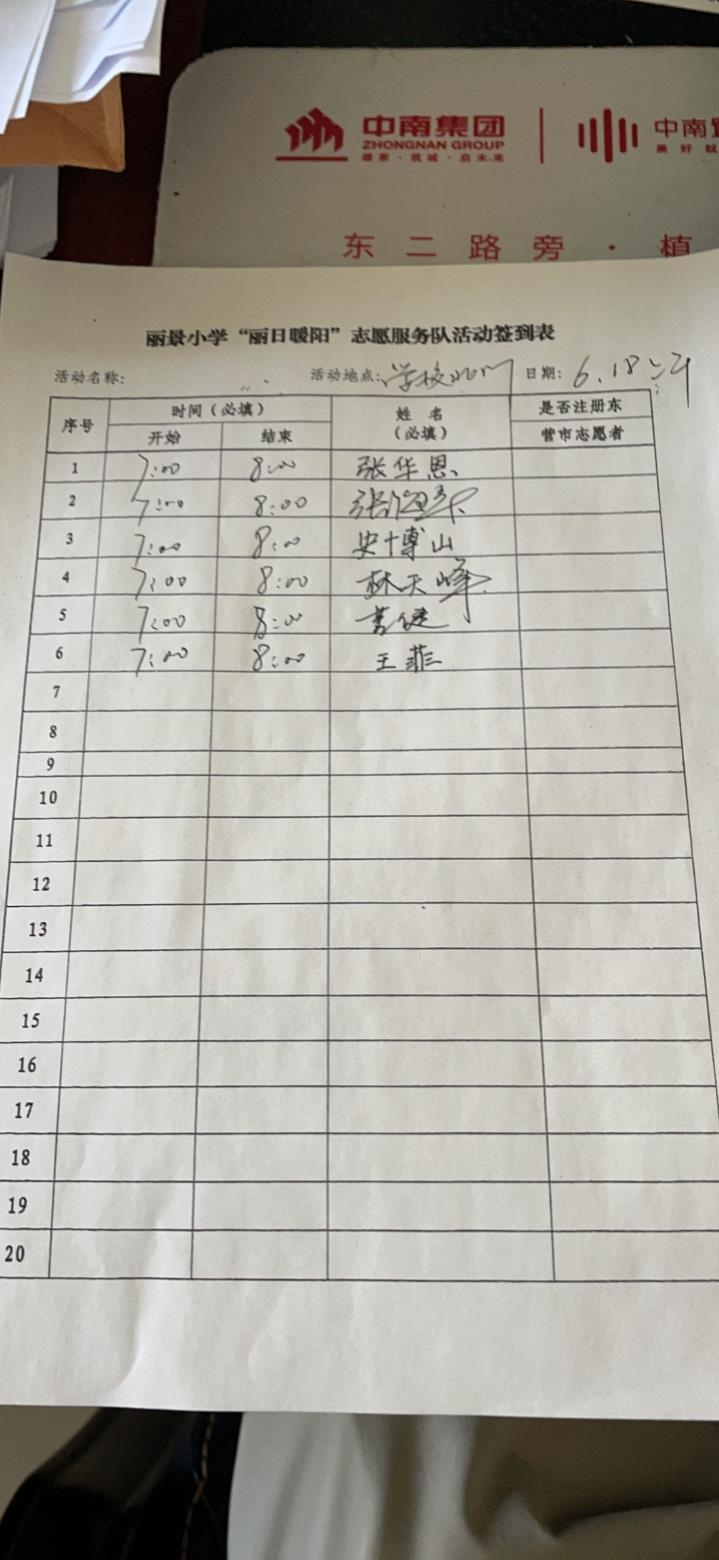 中南集团
ZHONGNAN GROUP
中南
美好就
东二路旁·植
丽景小学“丽日暖阳”志愿服务队活动签到表
活动名称: 活动地点:学校北门 日期: 6.18
序号 时间(必填) 姓 名 (必填) 是否注册东营市志愿者
开始 结束
1 7:00 8:00 张华恩
2 7:00 8:00
3 7:00 8:00 史博山
4 7:00 8:00 林天峰
5 7:00 8:00
6 7:00 8:00 王菲
7
8
9
10
11
12
13
14
15
16
17
18
19
20